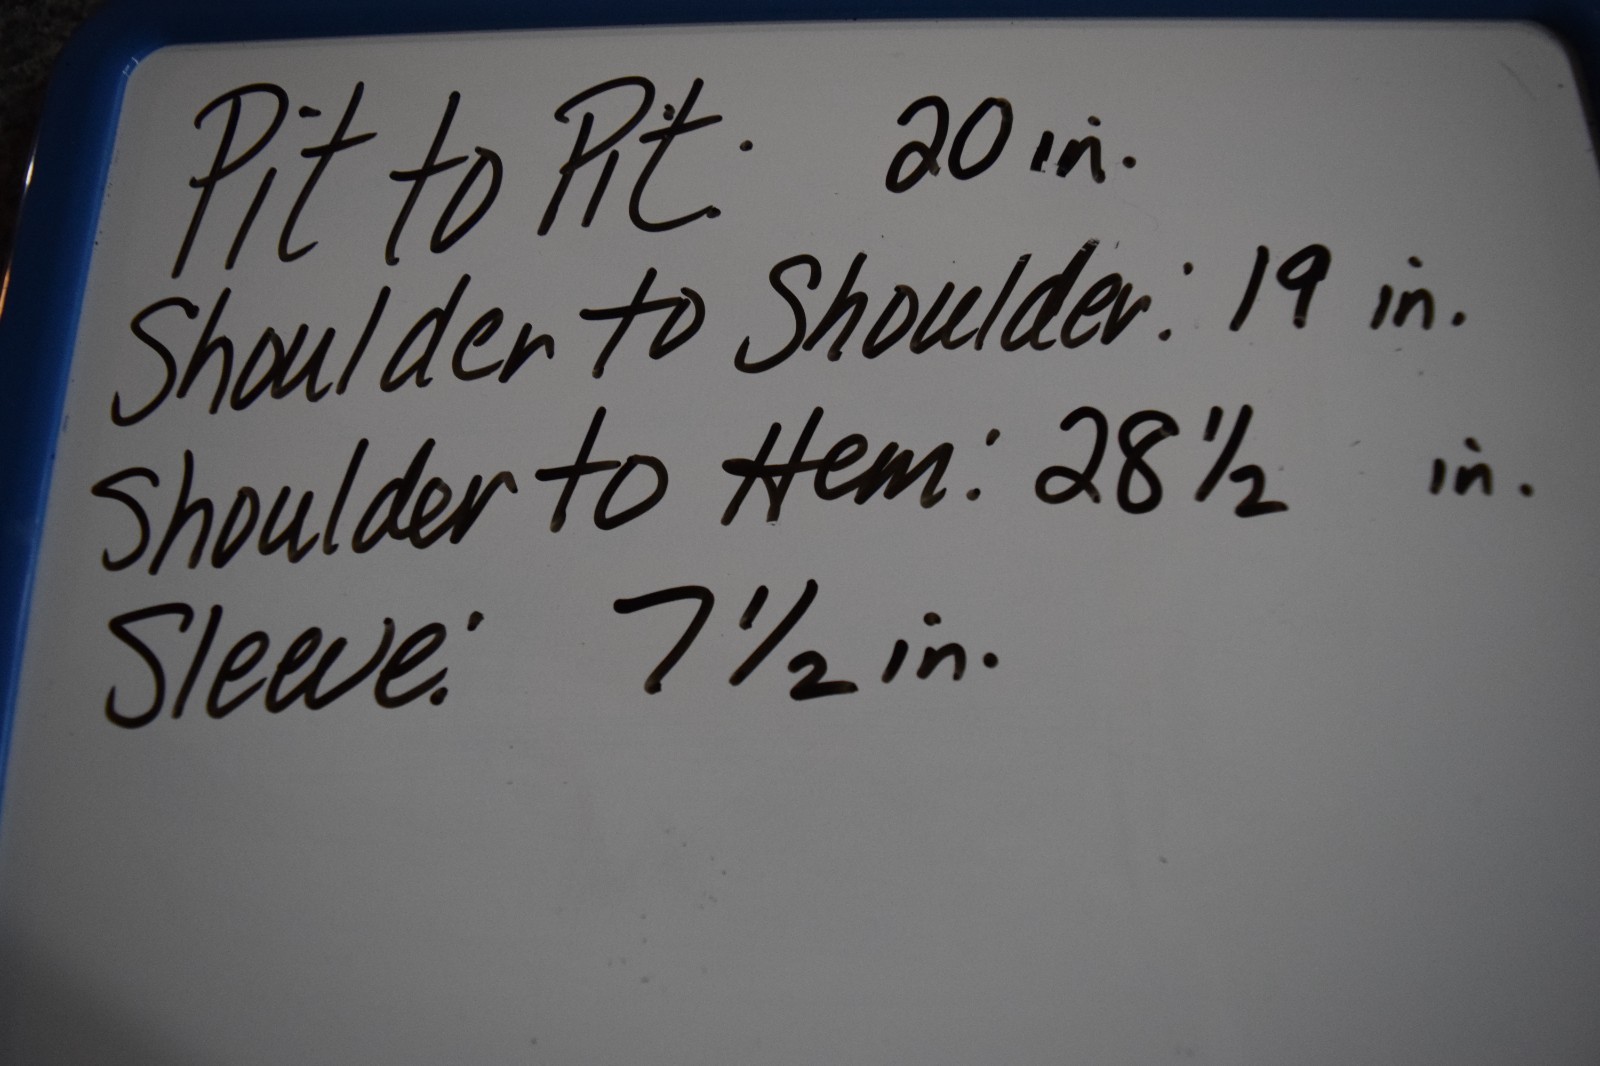 Pit to Pit: 20 in.
Shoulder to Shoulder: 19 in.
Shoulder to Hem: 28 1/2 in.
Sleeve: 7 1/2 in.